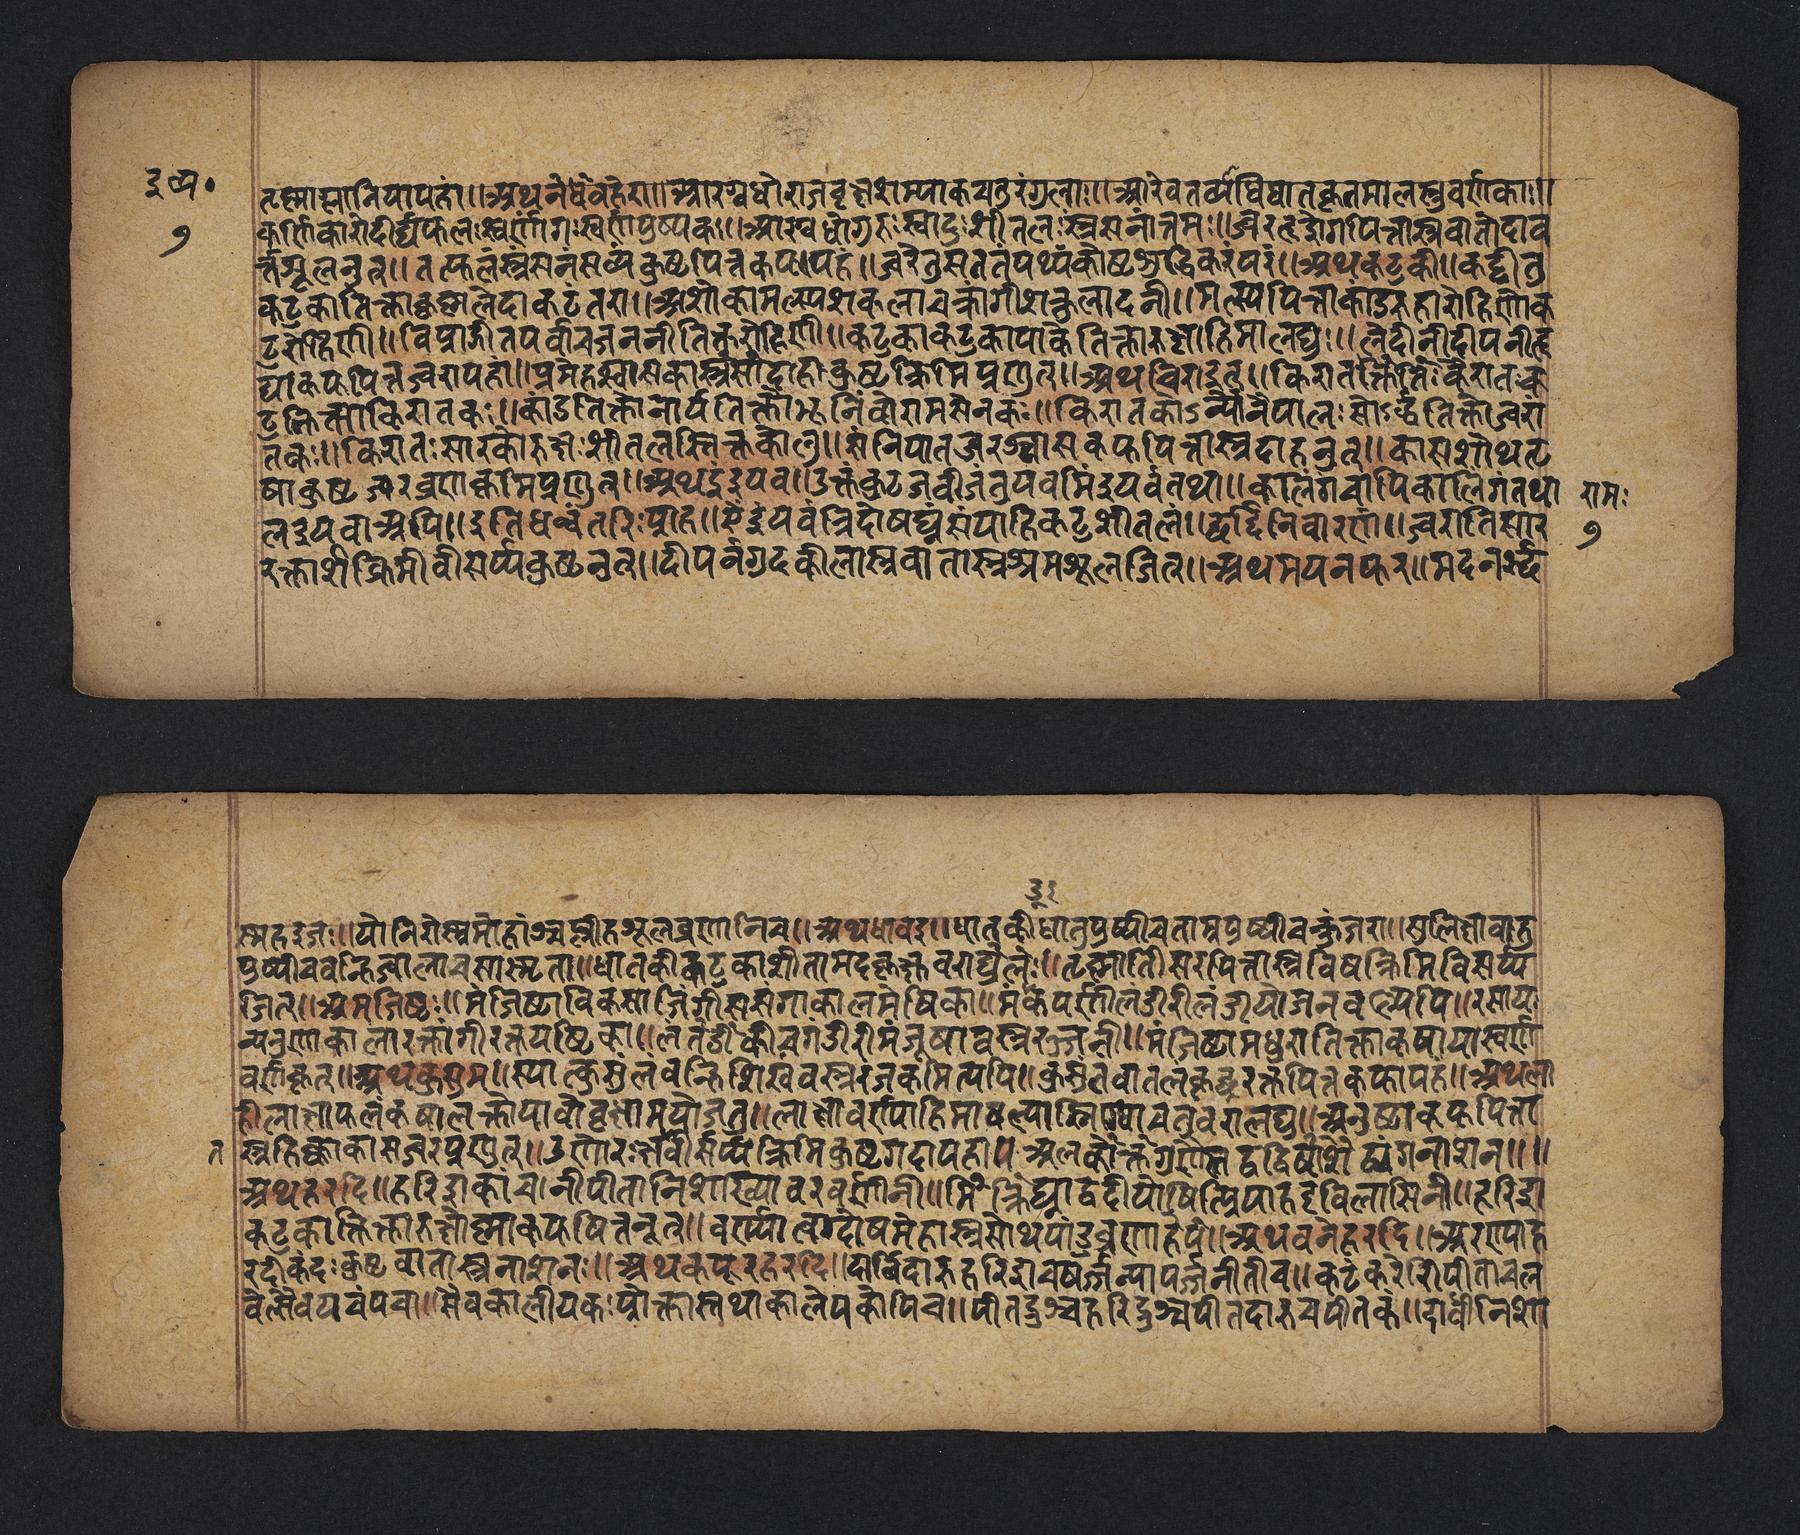 द्रव्य॰
७
तृष्णास्रानिपापहा॥ अथ बंधबहेरा॥ आरग्वधोराजवृक्षशम्पाकचतुरंगुलाः॥ आरेवतव्याधिघातकृतमालसुवर्णकाः॥
कर्णिकारोदीर्घफलःस्वर्णांगःस्वर्णपुष्पकः॥ आरग्वधोगुरुःस्वादुःशीतलःस्रंसनोत्तमः॥ ज्वरहृद्रोगपित्तास्रवातोदाव
र्त्तशूलनुत्॥ तत्फलंस्रंसनंरुच्यंकुष्टपित्तकफापहं॥ ज्वरेतुसततंपथ्यंकोष्टशुद्धिकरंपरं॥ अथकटुकी॥ कट्वीतु
कटुकातिक्ताकृष्णभेदाकटंतरा॥ अशोकामत्स्यशकलाचक्रांगीशकुलादनी॥ मत्स्यपित्ताकांडरुहारोहिणीक
टुरोहिणी॥
कटुकाकटुकापाकेतिक्तारूक्षाहिमालघुः॥ भेदिनीदीपनीहृ
द्याकफपित्तज्वरापहा॥ प्रमेहश्वासकासास्रदाहकुष्टक्रिमिप्रणुत्॥ अथचिराइत॥ किराततिक्तःकैरातःक
टुतिक्तोकिरातकः॥ कांडतिक्तोनार्यतिक्तोभूनिंबोरामसेनकः॥ किरातकोऽन्योनैपालःसोऽर्द्धतिक्तोज्वरां
तकः॥ किरातःसारकोरूक्षःशीतलस्तिक्तकोलघु॥ संनिपातज्वरश्वासकफपित्तास्रदाहनुत्॥ कासशोथतृ
षाकुष्टज्वरव्रणक्रिमिप्रणुत्॥ अथइंद्रयव॥ उक्तंकुटजबीजंतुयवमिंद्रयवंतथा॥ कलिंगंचापिकालिंगंतथा
रामः
७
भद्रयवाअपि॥ इतिधन्वंतरिःप्राह॥ इंद्रयवंत्रिदोषघ्नंसंग्राहिकटुशीतलं॥ छर्दिनिवारणं॥ ज्वरातिसार
रक्तार्शक्रिमीवीसर्प्पकुष्टनुत्॥ दीपनंगुदकीलास्रवातास्रश्रमशूलजित्॥ अथमयनफर॥ मदनश्छर्द
धातकीधातुपुष्पीचताम्रपुष्पीचकुंजरा॥ सुभिक्षाबहु
पुष्पीचवह्निज्वालाचसास्मृता॥ धातकीकटुकाशीतामदकृत्तुवरालघुः॥ तृष्णातिसारपित्तास्रविषक्रिमिविसर्प्प
जित्॥ अथमजिष्टः॥ मंजिष्टाविकसाजिंगीसमंगाकालमेषिका॥ मंडूकपर्णीभंडीरीभंडीयोजनवल्यपि॥ रसाय
न्यरुणाकालारक्तांगीरक्तयष्टिका॥ भंतडीकीचगंडीरीमंजूषावस्त्ररञ्जनी॥ मंजिष्टामधुरातिक्ताकषायास्वर्ण
वर्णकृत्॥ अथकुसुम॥ स्यात्कुसुंभंवह्निशिखंवस्त्ररंजकमित्यपि॥ कुसुंभंवातलंकृच्छ्ररक्तपित्तकफापहं॥ अथला
ही॥ लाक्षापलंकषालक्तोयावोवृक्षामयोजतु॥ लाक्षावर्ण्याहिमाबल्यास्निग्धाचतुवरालघु॥ अनुष्णाकफपित्ता
त
स्रहिक्काकासज्वरप्रणुत्॥ व्रणोरःक्षतवीसर्प्पक्रिमिकुष्टगदापहा॥ अलक्तोगुणैस्तद्वद्विशेषाद्व्यंगनाशन॥॥
अथहरदि॥ हरिद्राकांचनीपीतानिशाख्यावरवर्णिनी॥ क्रिमिघ्नाहलदीयोषित्प्रियाहट्टविलासिनी॥ हरिद्रा
कटुकातिक्तारूक्षोष्णाकफपित्तनुत्॥ वर्ण्यात्वग्दोषमेहास्रशोथपांडुव्रणापहा॥ अथवनहरदि॥ अरण्यह
रदीकंदःकुष्टवातास्रनाशनः॥ अथकपूरहरदि॥ दार्विदारुहरिद्राचपर्जन्यापर्जनीतिच॥ कटंकटेरीपीताचभ
वेत्सैवपचंपचा॥ सैवकालीयकःप्रोक्तास्तथाकालेयकोपिच॥ पीतद्रुश्चहरिद्रुश्चपीतदारुचपीतकं॥ दार्वीनिशा